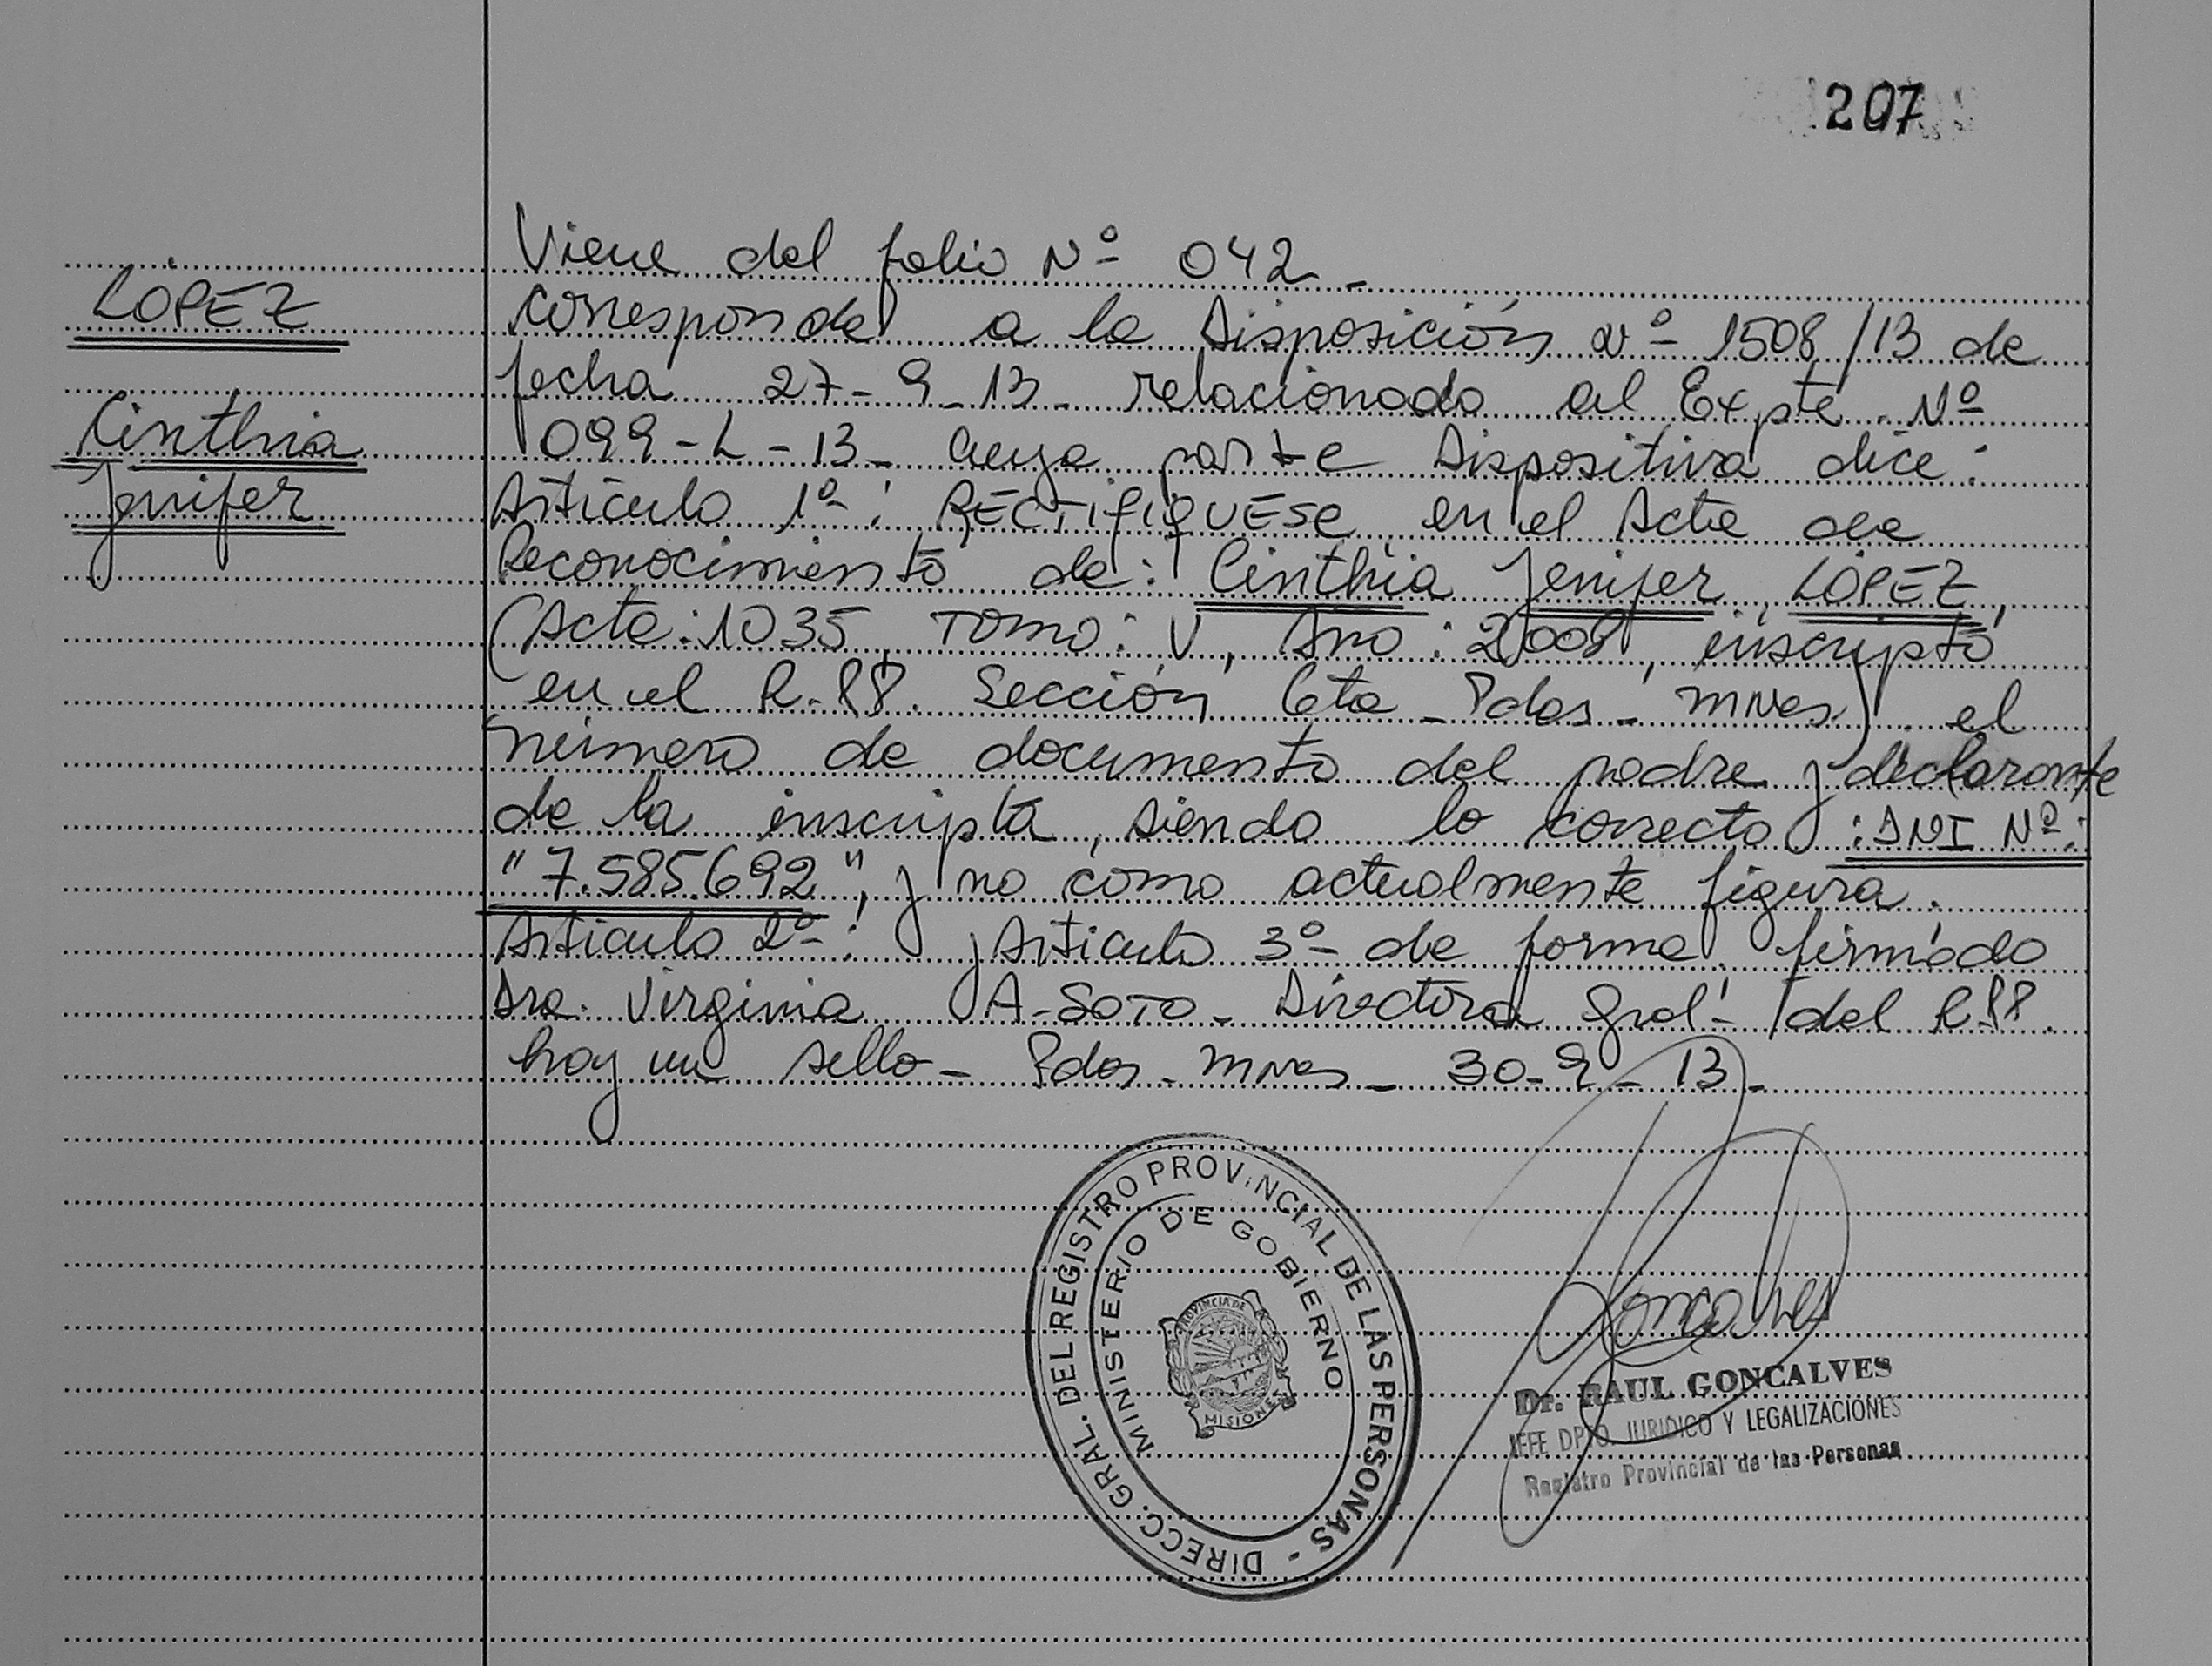 207
LOPEZ
Cinthia
Jenifer
Viene del folio Nº 042 -
Corresponde a la Disposición Nº 1508/13 de
fecha 27-9-13- relacionado al Expte. Nº
099-L-13- cuya parte Dispositiva dice:
Artículo 1º: RECTIFIQUESE en el Acta de
Reconocimiento de: Cinthia Jenifer LOPEZ,
(Acta: 1035, Tomo: V, Año: 2008, inscripto
en el R.PP. Sección 6ta - Pdas - Mnes) el
número de documento del padre y declarante
de la inscripta, siendo lo correcto: DNI Nº:
"7.585.692", y no como actualmente figura.
Artículo 2º: y Artículo 3º de forma. firmado
Dra. Virginia A-SOTO- Directora Gral. del R.PP.
hay un sello- Pdas- Mnes- 30-9-13-
DIRECC. GRAL. DEL REGISTRO PROVINCIAL DE LAS PERSONAS -
MINISTERIO DE GOBIERNO
PROVINCIA DE
MISIONES
Goncalves
Dr. RAUL GONCALVES
JEFE DPTO. JURIDICO Y LEGALIZACIONES
Registro Provincial de las Personas